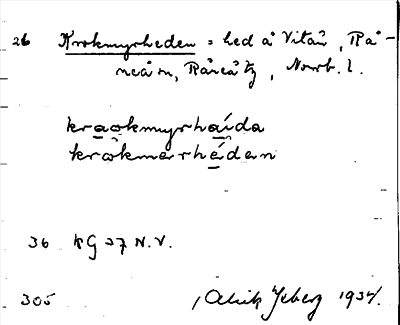 26 Krokmyrheden = hed å Vitån, Rå-
neå sn, Råneå tg, Norrb. l.
kraokmyrhaída
krokmerrhéden
36 KG 27 N.V.
305 Alrik Ysberg 1934.